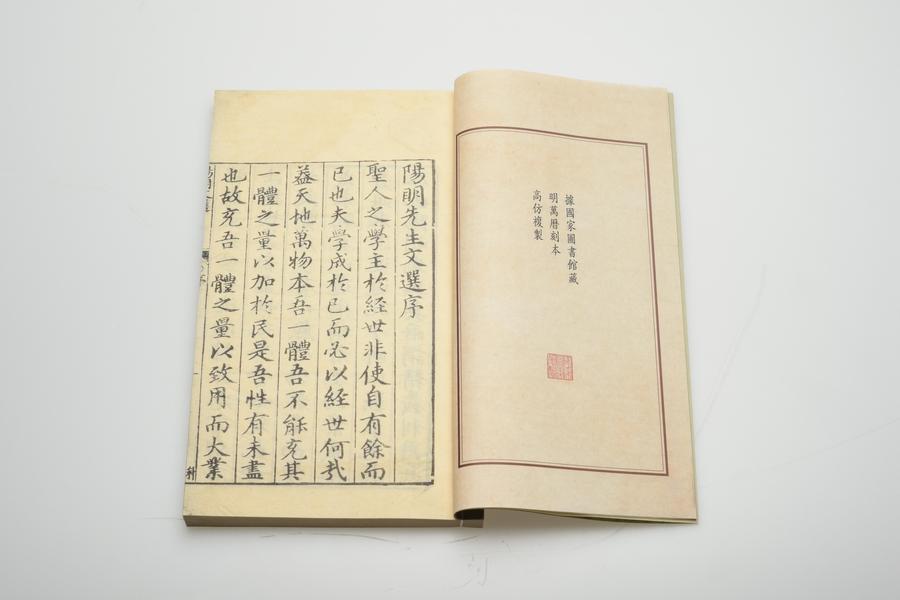 據國家圖書館藏
明萬曆刻本
高仿複製
陽明先生文選序
聖人之學主於經世非使自有餘而
已也夫學成於己而必以經世何㢤
葢天地萬物本吾一體吾不能充其
一體之量以加於民是吾性有未盡
也故充吾一體之量以致用而大業